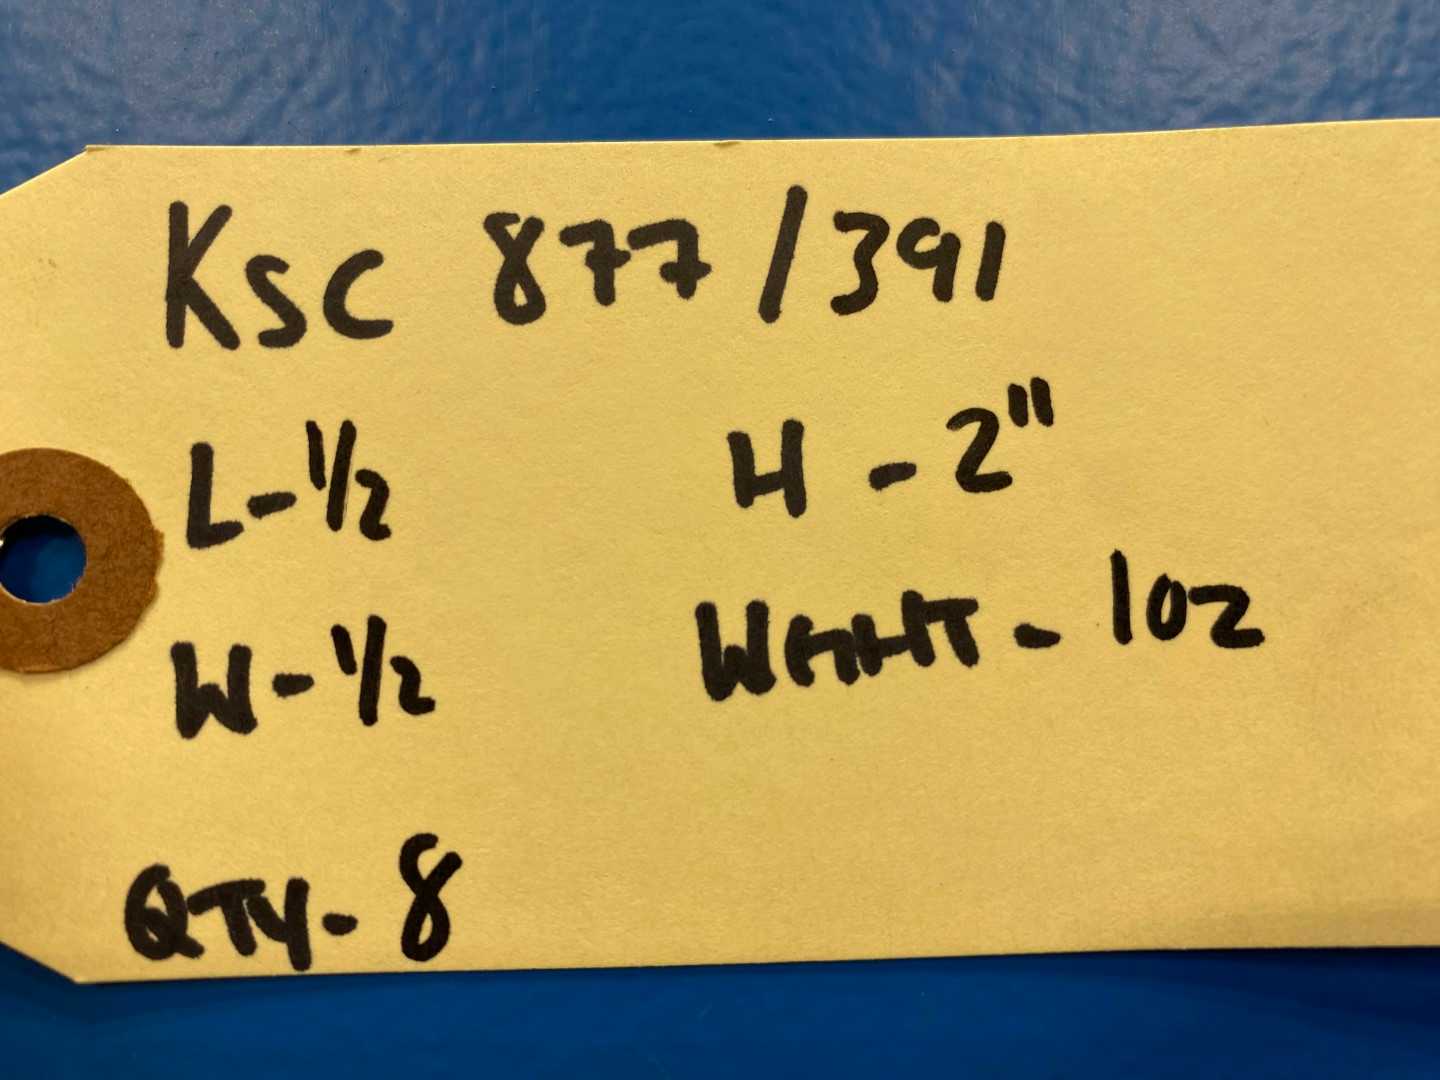 KSC 877/391
L-1/2 H-2"
W-1/2 WGHT-1oz
QTY-8